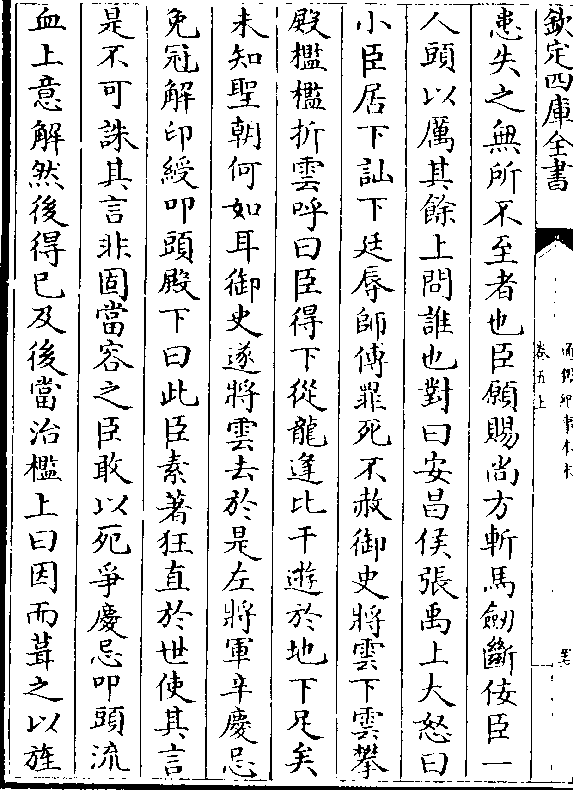 欽定四庫全書
通鑑紀事本末
卷五上
患失之無所不至者也臣願賜尚方斬馬劒斷佞臣一
人頭以厲其餘上問誰也對曰安昌侯張禹上大怒曰
小臣居下訕下廷辱師傅罪死不赦御史將雲下雲攀
殿檻檻折雲呼曰臣得下從龍逢比干遊於地下足矣
未知聖朝何如耳御史遂將雲去於是左將軍辛慶忌
免冠解印綬叩頭殿下曰此臣素著狂直於世使其言
是不可誅其言非固當容之臣敢以死爭慶忌叩頭流
血上意解然後得已及後當治檻上曰因而葺之以旌